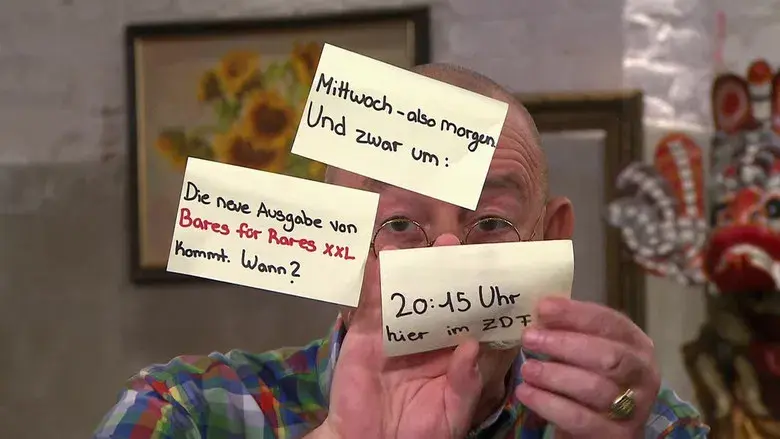 Die neue Ausgabe von
Bares for Rares XXL
kommt. Wann?
Mittwoch-also morgen.
Und zwar um:
20:15 Uhr
hier im ZDF